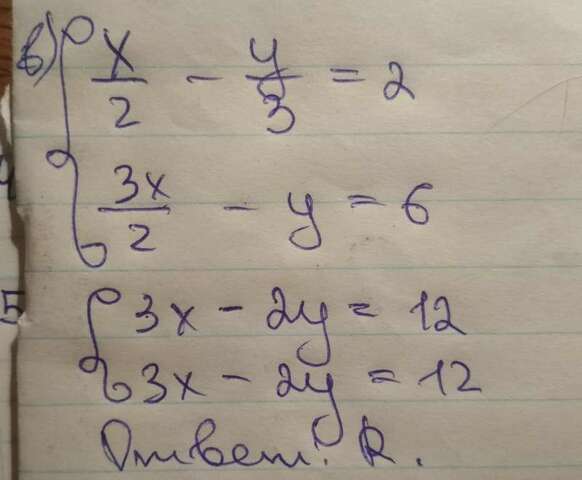 в) x/2 - y/3 = 2
3x/2 - y = 6
5
3x - 2y = 12
3x - 2y = 12
Ответ: R.